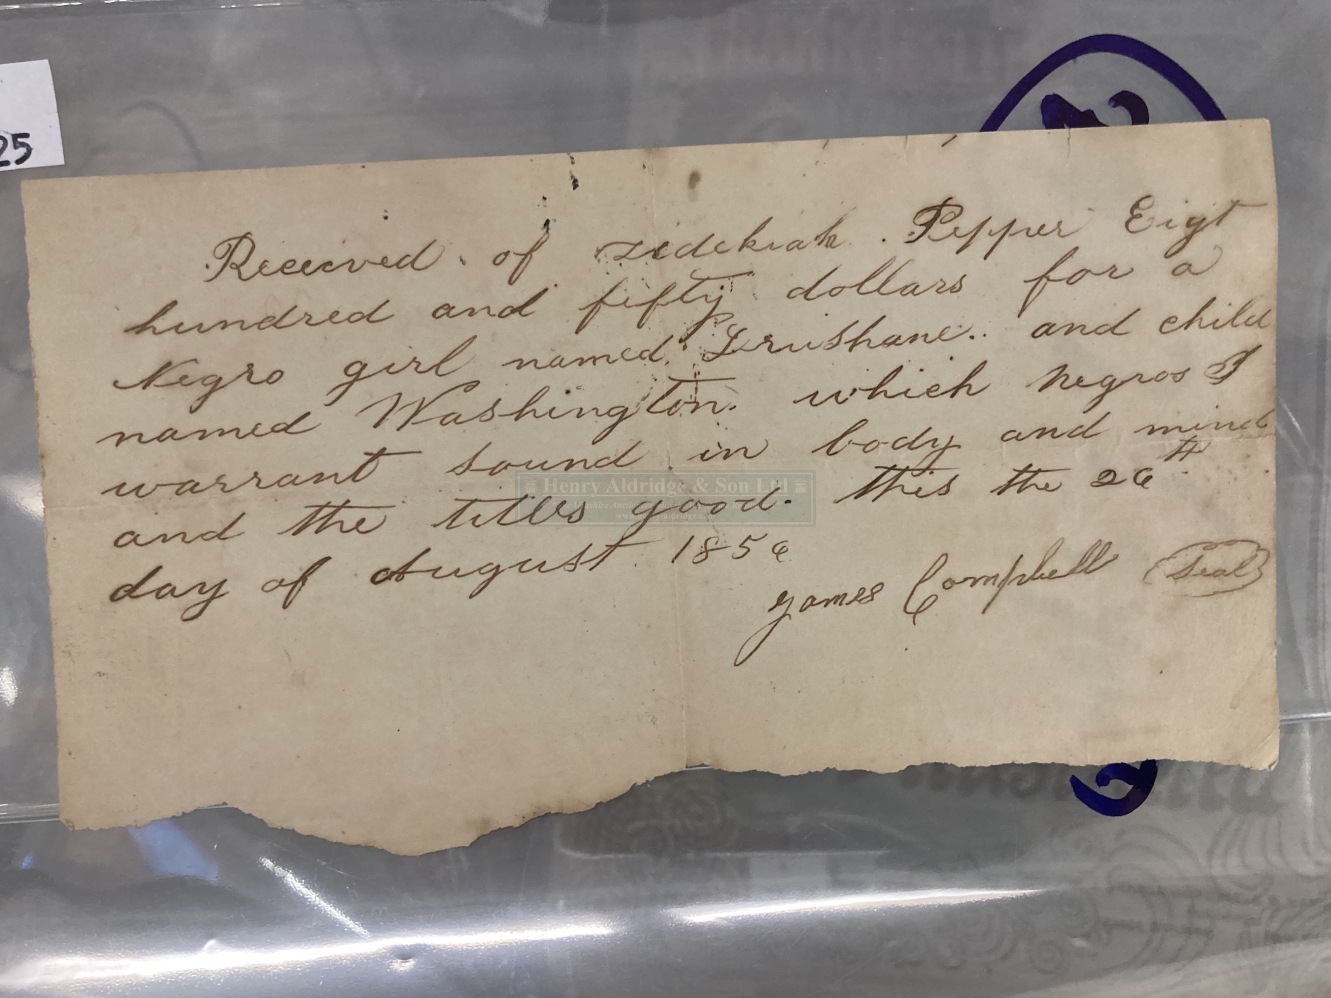 25
Received of zedekiah Pepper Eigt
hundred and fifty dollars for a
Negro girl named Gerushane.. and child
named Washington. which negros I
warrant sound in body and mind
and the titles good. this the 26th
day of August 1856
James Campbell Seal
Henry Aldridge & Son Ltd